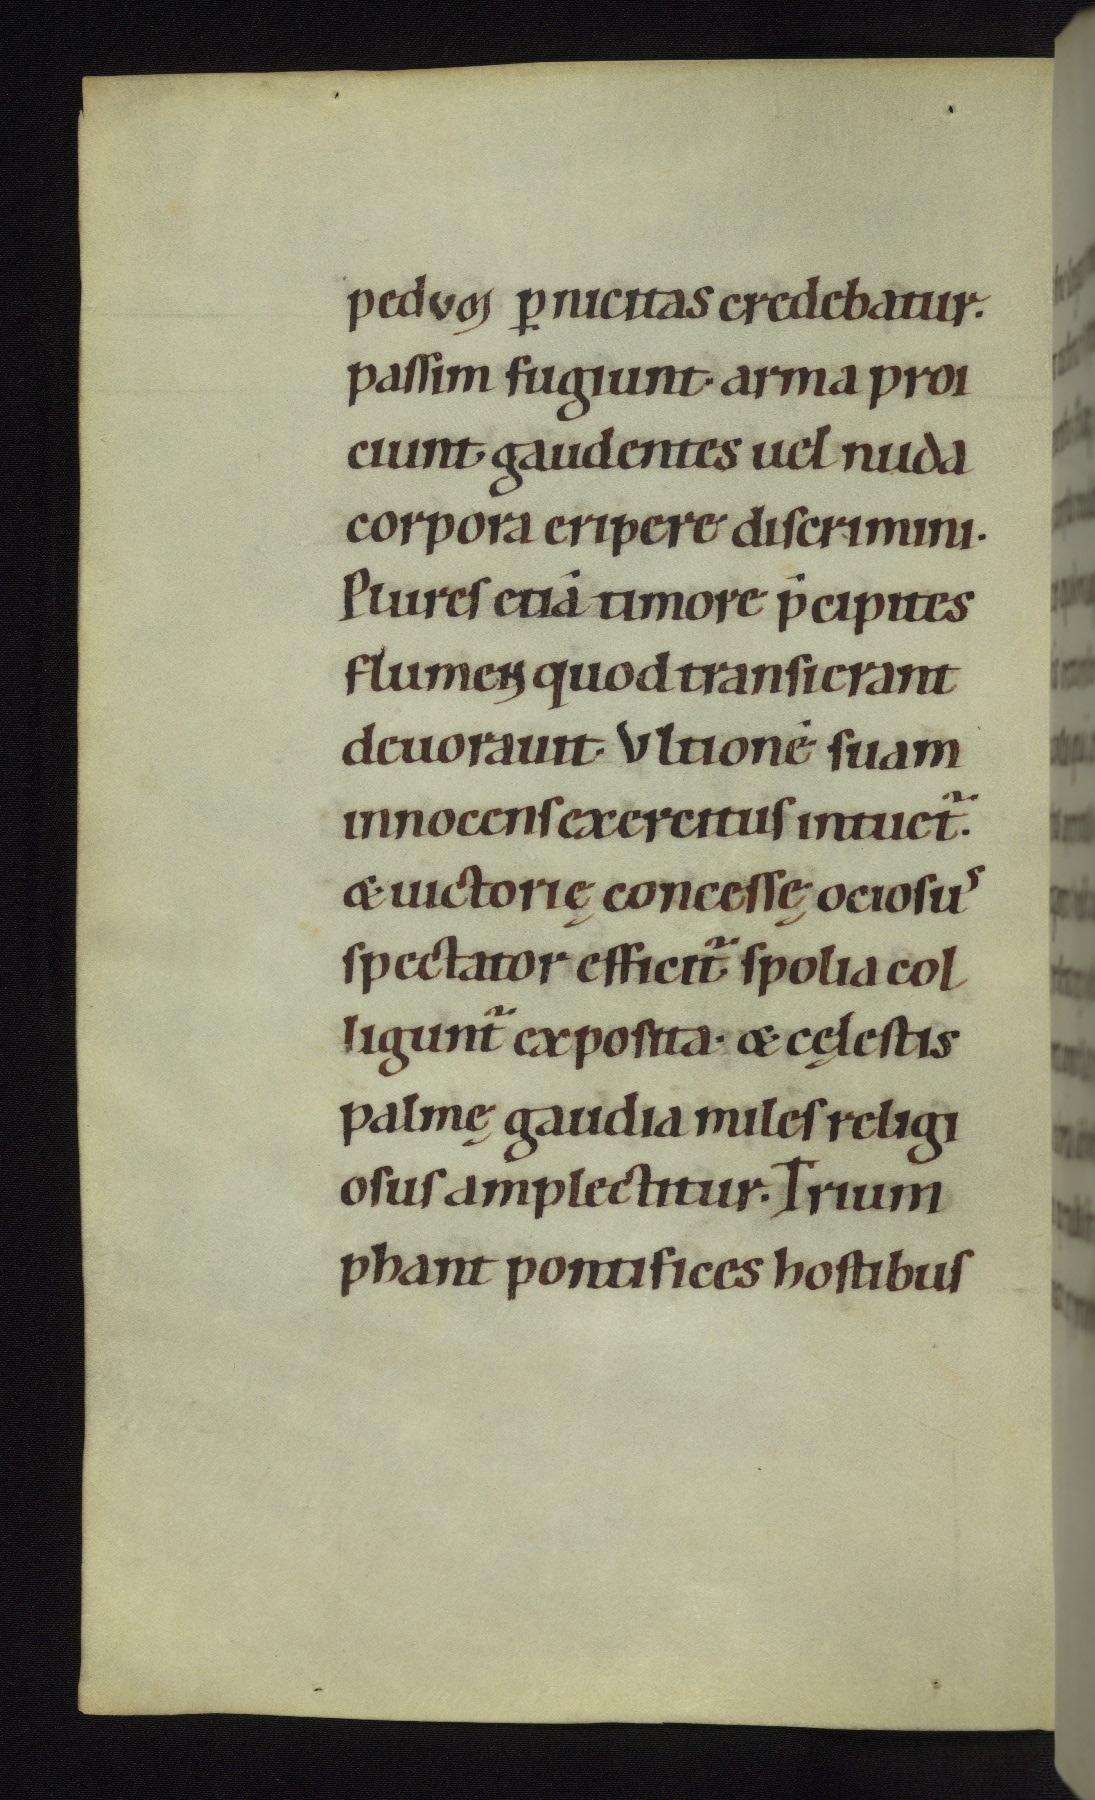 pedvm ꝑnicitas credebatur.
paſſim fugiunt· arma proi
ciunt gaudentes uel nuda
corpora eripere diſcrimini·
Plureſ etiā timore p̄cipites
flumen quod tranſierant
deuorauit· Vltionē ſuam
innocenſ exercituſ intuet᷑.
& uictorię conceſſę ocioſuˢ
ſpectator efficit᷑ ſpolia col
ligunt᷑ expoſita· & cęleſtis
palmę gaudia mileſ religi
oſuſ amplectitur. Trium
phant pontifices hoſtibuſ